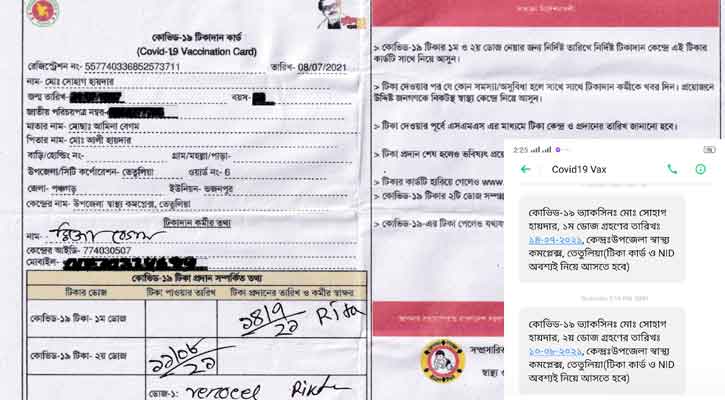 কোভিড-১৯ টিকাদান কার্ড
(Covid-19 Vaccination Card)
রেজিস্ট্রেশন নং- 557740336852573711
তারিখ- 08/07/2021
নাম- মোঃ সোহাগ হায়দার
জন্ম তারিখ-
বয়স-
জাতীয় পরিচয়পত্র নম্বর-
মাতার নাম- মোছাঃ আমিনা বেগম
পিতার নাম- মোঃ আলী হায়দার
বাড়ি/হোল্ডিং নং-
গ্রাম/মহল্লা/পাড়া-
উপজেলা/সিটি কর্পোরেশন- তেতুলিয়া
ওয়ার্ড নং- 6
জেলা- পঞ্চগড়
ইউনিয়ন- ভজনপুর
কেন্দ্রের নাম- উপজেলা স্বাস্থ্য কমপ্লেক্স, তেতুলিয়া
টিকাদান কর্মীর তথ্য
নাম-
কেন্দ্রের আইডি- 774030507
মোবাইল-
কোভিড-১৯ টিকা প্রদান সম্পর্কিত তথ্য
টিকার ডোজ
টিকা পাওয়ার তারিখ
টিকা প্রদানের তারিখ ও কর্মীর স্বাক্ষর
কোভিড-১৯ টিকা- ১ম ডোজ
১৪/৭/২১ Rita
কোভিড-১৯ টিকা- ২য় ডোজ
ডোজ-১: verocel
> কোভিড-১৯ টিকার ১ম ও ২য় ডোজ নেয়ার জন্য নির্দিষ্ট তারিখে নির্দিষ্ট টিকাদান কেন্দ্রে এই টিকার
কার্ডটি সাথে নিয়ে আসুন।
> টিকা দেওয়ার পর যে কোন সমস্যা/অসুবিধা হলে সাথে সাথে টিকাদান কর্মীকে খবর দিন। প্রয়োজনে
উদ্দিষ্ট জনগণকে নিকটস্থ স্বাস্থ্য কেন্দ্রে নিয়ে আসুন।
> টিকা দেওয়ার পূর্বে এসএমএস এর মাধ্যমে টিকা কেন্দ্র ও প্রদানের তারিখ জানানো হবে।
> টিকা প্রদান শেষ হলেও ভবিষ্যৎ
> টিকার কার্ডটি হারিয়ে গেলেও www.
> কোভিড-১৯ টিকার ২টি ডোজ
> কোভিড-১৯-এর টিকা পেলেও
সম্প্রসারি
স্বাস্থ্য
2:25
Covid19 Vax
কোভিড-১৯ ভ্যাকসিনঃ মোঃ সোহাগ
হায়দার, ১ম ডোজ গ্রহণের তারিখঃ
১৪-০৭-২০২১, কেন্দ্রঃউপজেলা স্বাস্থ্য
কমপ্লেক্স, তেতুলিয়া(টিকা কার্ড ও NID
অবশ্যই নিয়ে আসতে হবে)
কোভিড-১৯ ভ্যাকসিনঃ মোঃ সোহাগ
হায়দার, ২য় ডোজ গ্রহণের তারিখঃ
১০-০৮-২০২১, কেন্দ্রঃউপজেলা স্বাস্থ্য
কমপ্লেক্স, তেতুলিয়া(টিকা কার্ড ও NID
অবশ্যই নিয়ে আসতে হবে)